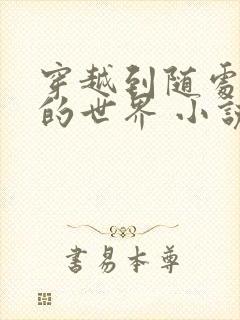 穿越到随处
的世界 小说
書易本尊